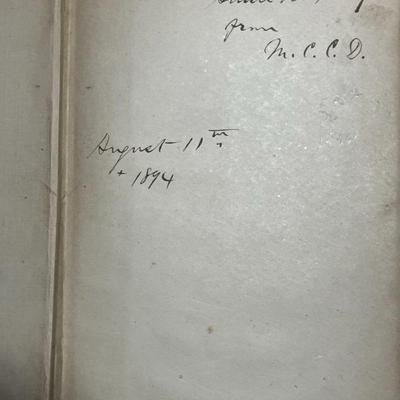 from
M. C. C. D.
August 11th
+ 1894